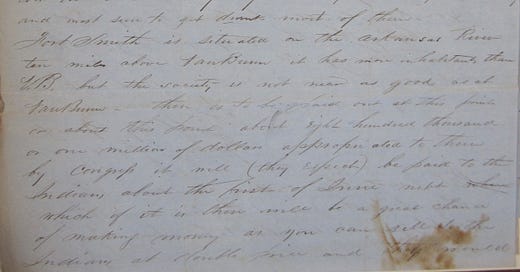 and most sure to get drunk most of them
Fort Smith is situated on the Arkansas River
ten miles above VanBuren it has more inhabitants than
V.B. but the society is not near as good as at
VanBuren - there is to be paid out at this point
or about this point about eight hundred thousand
or one million of dollars appropriated to them
by Congress it will (they expect) be paid to the
Indians about the first of June next when
which if it is there will be a great chance
of making money as you can sell to the
Indians at double price and they would